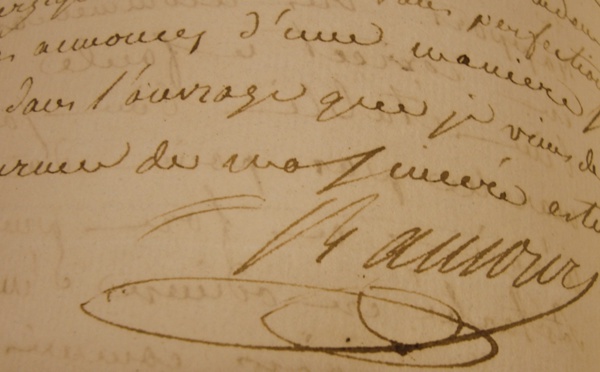 perfection
annoncés d'une manière
dans l'ouvrage que je viens de
de ma sincère esti
Ramour